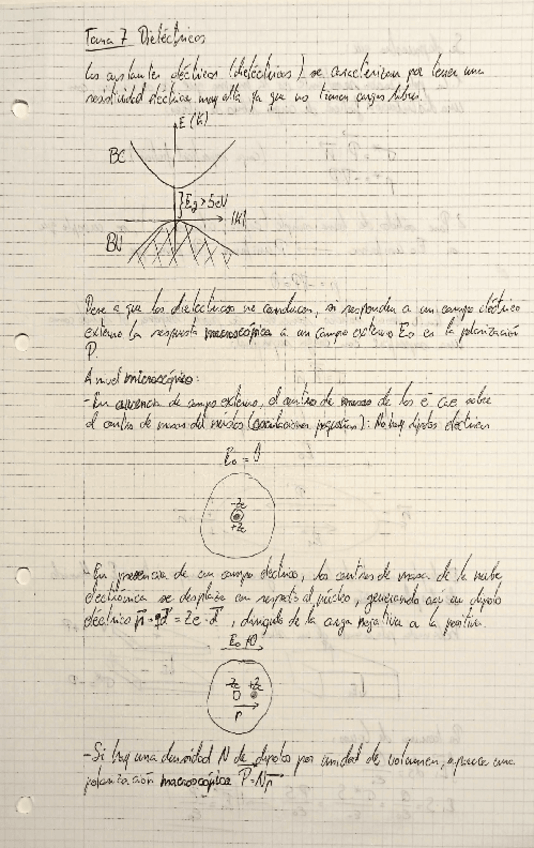 Tema 7 Dieléctricos
Los aislantes eléctricos (dieléctricos) se caracterizan por tener una
resistividad eléctrica muy alta ya que no tienen cargas libres.
E(k)
BC
Eg > 5eV
|k|
BV
Pese a que los dieléctricos no conducen, si responden a un campo eléctrico
externo la respuesta macroscópica a un campo externo E₀ es la polarización
P.
A nivel microscópico:
- En ausencia de campo externo, el centro de masas de los e⁻ cae sobre
el centro de masas del núcleo (oscilaciones pequeñas): No hay dipolos eléctricos
E₀ = 0
-Ze
+Ze
- En presencia de un campo eléctrico, los centros de masa de la nube
electrónica se desplaza con respecto al núcleo, generando así un dipolo
eléctrico p = qd = Ze · d, dirigido de la carga negativa a la positiva.
E₀ ≠ 0
-Ze +Ze
P
- Si hay una densidad N de dipolos por unidad de volumen, aparece una
polarización macroscópica P = Np